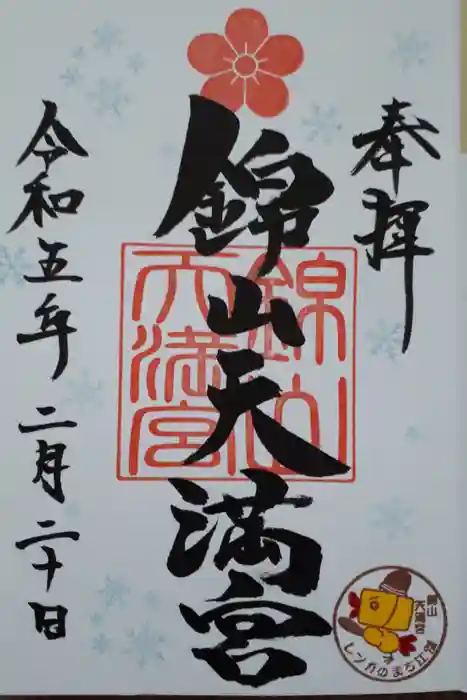 奉拝
錦山天満宮
錦山
天満宮
令和五年二月二十日
錦山
天満宮
レンガのまち江別